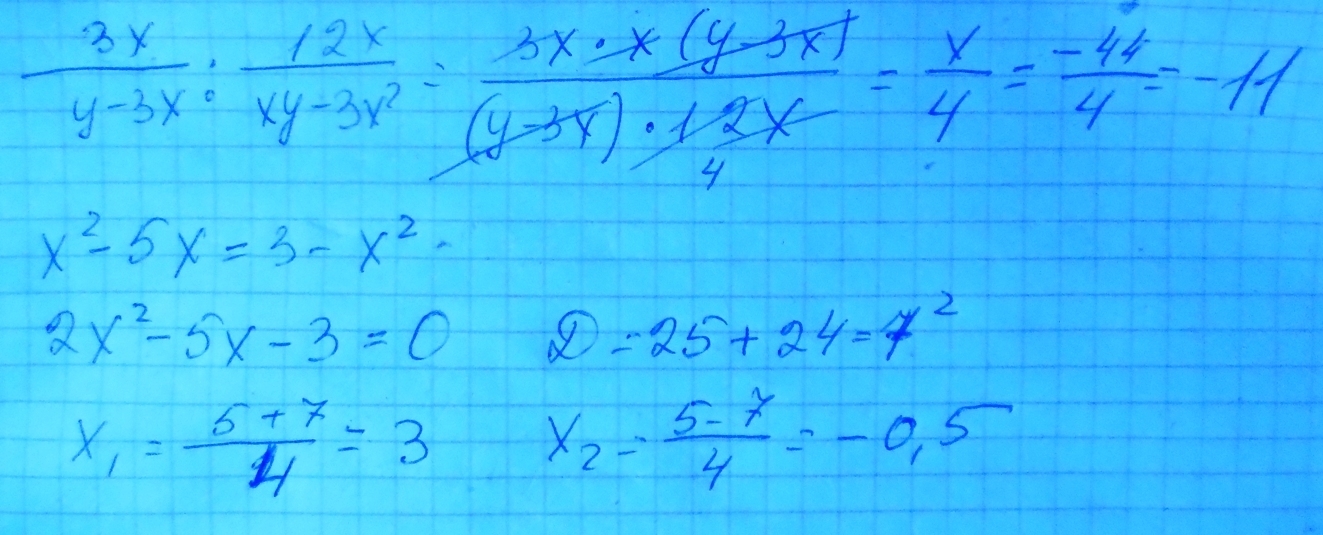 3x/(y-3x) : 12x/(xy-3x²) = 3x·x(y-3x)/((y-3x)·12x) 4 = x/4 = -44/4 = -11
x²-5x=3-x²
2x²-5x-3=0 D=25+24=7²
x₁=(5+7)/4=3 x₂=(5-7)/4=-0,5